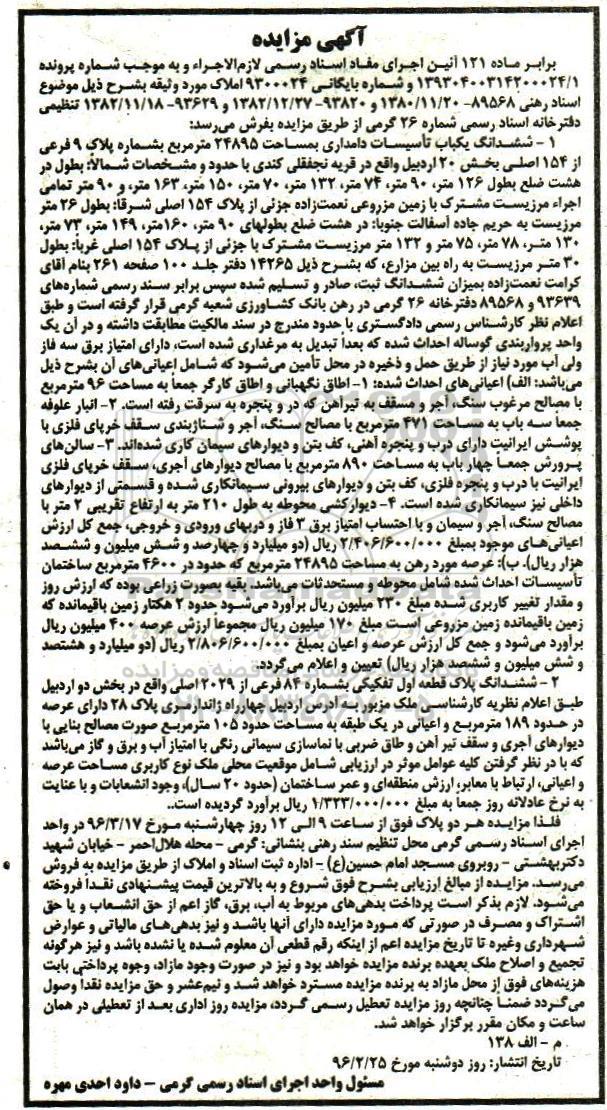 آگهی مزایده
برابر ماده ۱۲۱ آئین اجرای مفاد اسناد رسمی لازم‌الاجراء و به موجب شماره پرونده
۱۳۹۳۰۴۰۰۳۱۴۲۰۰۰۲۴/۱ و شماره بایگانی ۹۳۰۰۰۲۴ املاک مورد وثیقه بشرح ذیل موضوع
اسناد رهنی ۸۹۵۶۸- ۱۳۸۰/۱۱/۲۰ و ۹۳۸۲۰- ۱۳۸۲/۱۲/۲۷ و ۹۳۶۲۹- ۱۳۸۲/۱۱/۱۸ تنظیمی
دفترخانه اسناد رسمی شماره ۲۶ گرمی از طریق مزایده بفرش می‌رسد:
۱ - ششدانگ یکباب تأسیسات دامداری بمساحت ۲۴۸۹۵ مترمربع بشماره پلاک ۹ فرعی
از ۱۵۴ اصلی بخش ۲۰ اردبیل واقع در قریه نجفقلی کندی با حدود و مشخصات شمالاً: بطول در
هشت ضلع بطول ۱۲۶ متر، ۹۰ متر، ۷۴ متر، ۱۳۲ متر، ۷۰ متر، ۱۵۰ متر، ۱۶۳ متر، و ۹۰ متر تمامی
اجراء مرزیست مشترک با زمین مزروعی نعمت‌زاده جزئی از پلاک ۱۵۴ اصلی شرقا: بطول ۲۶ متر
مرزیست به حریم جاده آسفالت جنوبا: در هشت ضلع بطولهای ۹۰ متر، ۱۶۰متر، ۱۴۹ متر، ۷۳ متر،
۱۳۰ متر، ۷۸ متر، ۷۵ متر و ۱۳۲ متر مرزیست مشترک با جزئی از پلاک ۱۵۴ اصلی غرباً: بطول
۳۰ متر مرزیست به راه بین مزارع، که بشرح ذیل ۱۴۲۶۵ دفتر جلد ۱۰۰ صفحه ۲۶۱ بنام آقای
کرامت نعمت‌زاده بمیزان ششدانگ ثبت، صادر و تسلیم شده سپس برابر سند رسمی شماره‌های
۹۳۶۳۹ و ۸۹۵۶۸ دفترخانه ۲۶ گرمی در رهن بانک کشاورزی شعبه گرمی قرار گرفته است و طبق
اعلام نظر کارشناس رسمی دادگستری با حدود مندرج در سند مالکیت مطابقت داشته و در آن یک
واحد پرواربندی گوساله احداث شده که بعداً تبدیل به مرغداری شده است، دارای امتیاز برق سه فاز
ولی آب مورد نیاز از طریق حمل و ذخیره در محل تأمین می‌شود که شامل اعیانی‌های آن بشرح ذیل
می‌باشد: الف) اعیانی‌های احداث شده: ۱- اطاق نگهبانی و اطاق کارگر جمعاً به مساحت ۹۶ مترمربع
با مصالح مرغوب سنگ، آجر و مسقف به تیرآهن که در و پنجره به سرقت رفته است. ۲- انبار علوفه
جمعا سه باب به مساحت ۴۷۱ مترمربع با مصالح سنگ، آجر و شناژبندی سقف خرپای فلزی با
پوشش ایرانیت دارای درب و پنجره آهنی، کف بتن و دیوارهای سیمان کاری شده‌اند. ۳- سالن‌های
پرورش جمعاً چهار باب به مساحت ۸۹۰ مترمربع با مصالح دیوارهای آجری، سقف خرپای فلزی
ایرانیت با درب و پنجره فلزی، کف بتن و دیوارهای بیرونی سیمانکاری شده و قسمتی از دیوارهای
داخلی نیز سیمانکاری شده است. ۴- دیوارکشی محوطه به طول ۲۱۰ متر به ارتفاع تقریبی ۲ متر با
مصالح سنگ، آجر و سیمان و با احتساب امتیاز برق ۳ فاز و دربهای ورودی و خروجی، جمع کل ارزش
اعیانی‌های موجود بمبلغ ۲/۴۰۶/۶۰۰/۰۰۰ ریال (دو میلیارد و چهارصد و شش میلیون و ششصد
هزار ریال). ب): عرصه مورد رهن به مساحت ۲۴۸۹۵ مترمربع که حدود در ۴۶۰۰ مترمربع ساختمان
تأسیسات احداث شده شامل محوطه و مستحدثات می‌باشد. بقیه بصورت زراعی بوده که ارزش روز
و مقدار تغییر کاربری شده مبلغ ۲۳۰ میلیون ریال برآورد می‌شود حدود ۲ هکتار زمین باقیمانده که
زمین باقیمانده زمین مزروعی است مبلغ ۱۷۰ میلیون ریال مجموعاً ارزش عرصه ۴۰۰ میلیون ریال
برآورد می‌شود و جمع کل ارزش عرصه و اعیان بمبلغ ۲/۸۰۶/۶۰۰/۰۰۰ ریال (دو میلیارد و هشتصد
و شش میلیون و ششصد هزار ریال) تعیین و اعلام می‌گردد.
۲ - ششدانگ پلاک قطعه اول تفکیکی بشماره ۸۴ فرعی از ۲۰۲۹ اصلی واقع در بخش دو اردبیل
طبق اعلام نظریه کارشناسی ملک مزبور به آدرس اردبیل چهارراه ژاندارمری پلاک ۲۸ دارای عرصه
در حدود ۱۸۹ مترمربع و اعیانی در یک طبقه به مساحت حدود ۱۰۵ مترمربع صورت مصالح بنایی با
دیوارهای آجری و سقف تیر آهن و طاق ضربی با نماسازی سیمانی رنگی با امتیاز آب و برق و گاز می‌باشد
که با در نظر گرفتن کلیه عوامل موثر در ارزیابی شامل موقعیت محلی ملک نوع کاربری مساحت عرصه
و اعیانی، ارتباط با معابر، ارزش منطقه‌ای و عمر ساختمان (حدود ۲۰ سال)، وجود انشعابات و با عنایت
به نرخ عادلانه روز جمعاً به مبلغ ۱/۳۲۳/۰۰۰/۰۰۰ ریال برآورد گردیده است..
فلذا مزایده هر دو پلاک فوق از ساعت ۹ الی ۱۲ روز چهارشنبه مورخ ۹۶/۳/۱۷ در واحد
اجرای اسناد رسمی گرمی محل تنظیم سند رهنی بنشانی: گرمی - محله هلال‌احمر - خیابان شهید
دکتربهشتی - روبروی مسجد امام حسین(ع) - اداره ثبت اسناد و املاک از طریق مزایده به فروش
می‌رسد. مزایده از مبالغ ارزیابی بشرح فوق شروع و به بالاترین قیمت پیشنهادی نقداً فروخته
می‌شود. لازم بذکر است پرداخت بدهی‌های مربوط به آب، برق، گاز اعم از حق انشعاب و یا حق
اشتراک و مصرف در صورتی که مورد مزایده دارای آنها باشد و نیز بدهی‌های مالیاتی و عوارض
شهرداری وغیره تا تاریخ مزایده اعم از اینکه رقم قطعی آن معلوم شده یا نشده باشد و نیز هرگونه
تجمیع و اصلاح ملک بعهده برنده مزایده خواهد بود و نیز در صورت وجود مازاد، وجوه پرداختی بابت
هزینه‌های فوق از محل مازاد به برنده مزایده مسترد خواهد شد و نیم‌عشر و حق مزایده نقداً وصول
می‌گردد ضمناً چنانچه روز مزایده تعطیل رسمی گردد، مزایده روز اداری بعد از تعطیلی در همان
ساعت و مکان مقرر برگزار خواهد شد.
م - الف ۱۳۸
تاریخ انتشار: روز دوشنبه مورخ ۹۶/۲/۲۵
مسئول واحد اجرای اسناد رسمی گرمی - داود احدی مهره